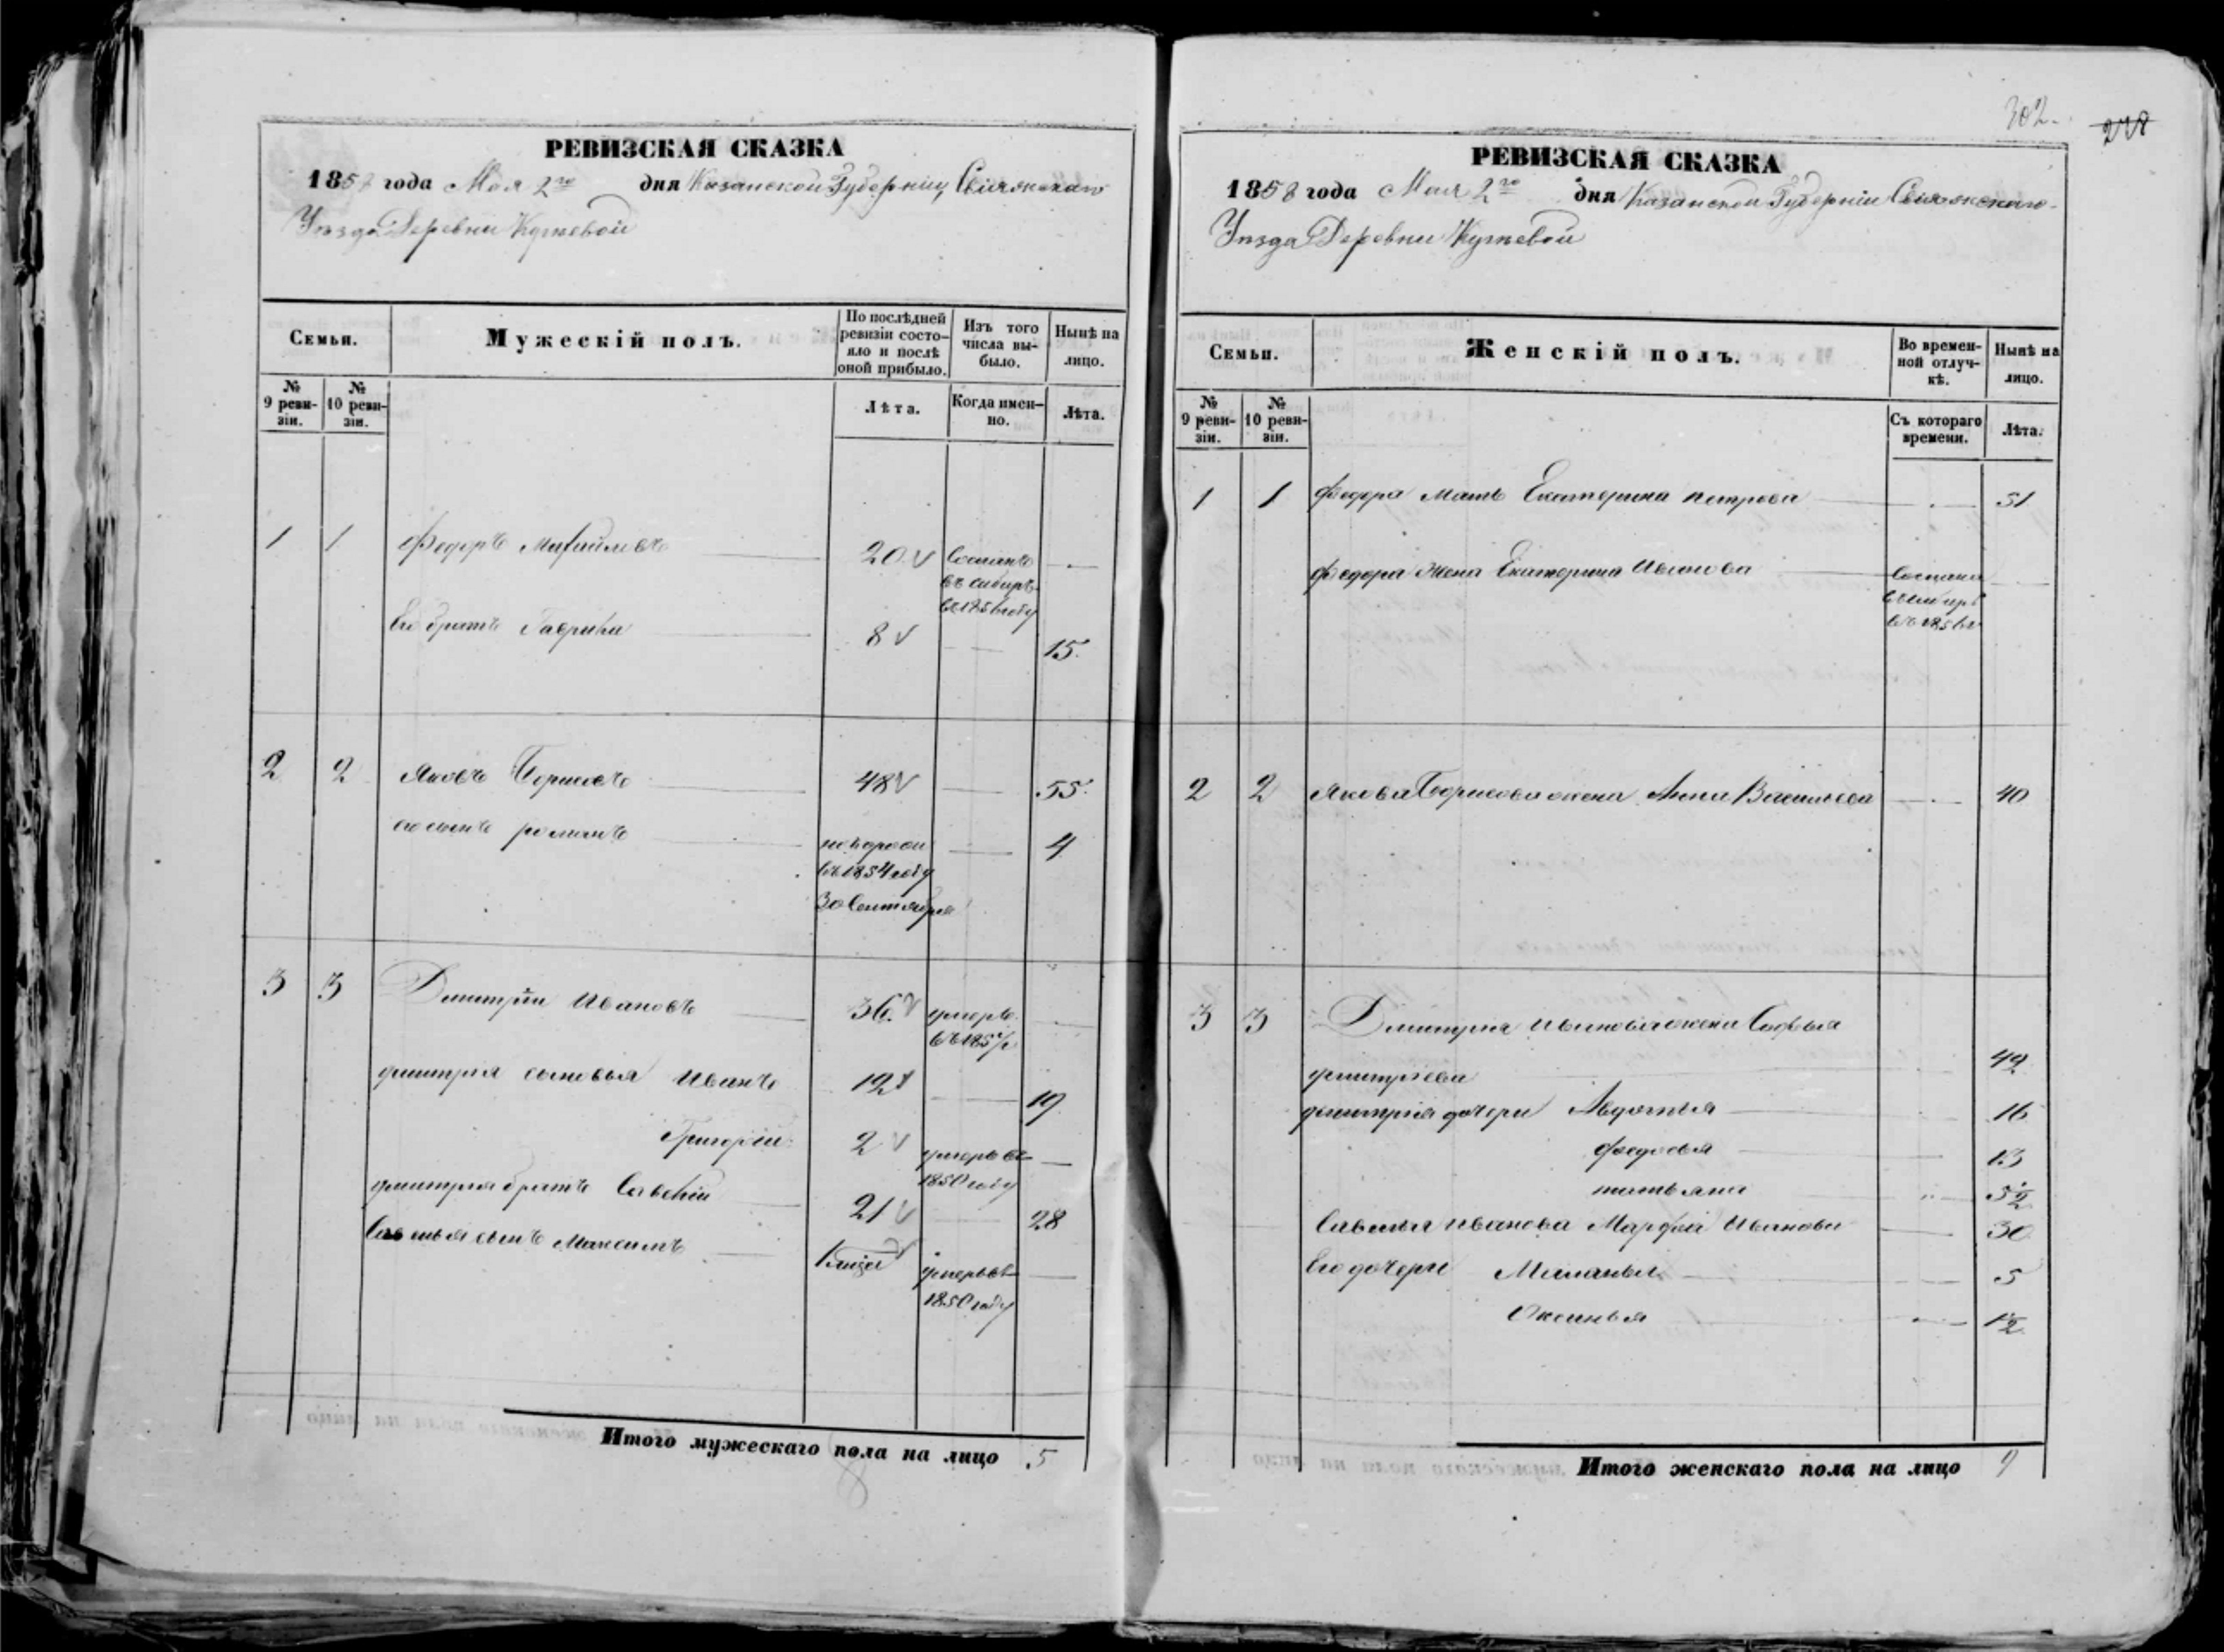 РЕВИЗСКАЯ СКАЗКА
1858 года Мая 2го дня Казанской Губерніи Свіяжскаго
Уѣзда Деревни
Семьи.
Мужескій полъ.
По послѣдней ревизіи состояло и послѣ оной прибыло.
Изъ того числа выбыло.
Нынѣ на лицо.
№ 9 ревизіи.
№ 10 ревизіи.
Лѣта.
Когда именно.
Лѣта.
1 1 Федоръ Михайловъ 20 Сосланъ
въ сибирь
въ 1856 году
Его братъ Гаврила 8 15.
2 2 Яковъ Борисовъ 48 55.
его сынъ романъ 4
въ 1854 году
30 Сентября
3 3 Дмитрій Ивановъ 36. умеръ
дмитрія сыновья Иванъ 12 19
Григорій 2 умеръ въ
1850 году
дмитрія братъ Савелій 21 28
Савелья сынъ Максимъ умеръ въ
1850 году
Итого мужескаго пола на лицо 5
302.
РЕВИЗСКАЯ СКАЗКА
1858 года Мая 2го дня Казанской Губерніи Свіяжскаго
Уѣзда Деревни
Семьи.
Женскій полъ.
Во временной отлучкѣ.
Нынѣ на лицо.
№ 9 ревизіи.
№ 10 ревизіи.
Съ котораго времени.
Лѣта.
1 1 федора мать Екатерина петрова 51
федора жена Екатерина Иванова Сослана
въ сибирь
въ 1856
2 2 Якова Борисова жена Анна Васильева 40
3 3 Дмитрія Иванова жена Софья
дмитріева 42
дмитрія дочери Авдотья 16
федосья 13
татьяна 5½
Савелья Иванова Марфа Иванова 30
Его дочери Маланья 5
Оксинья 1½
Итого женскаго пола на лицо 9